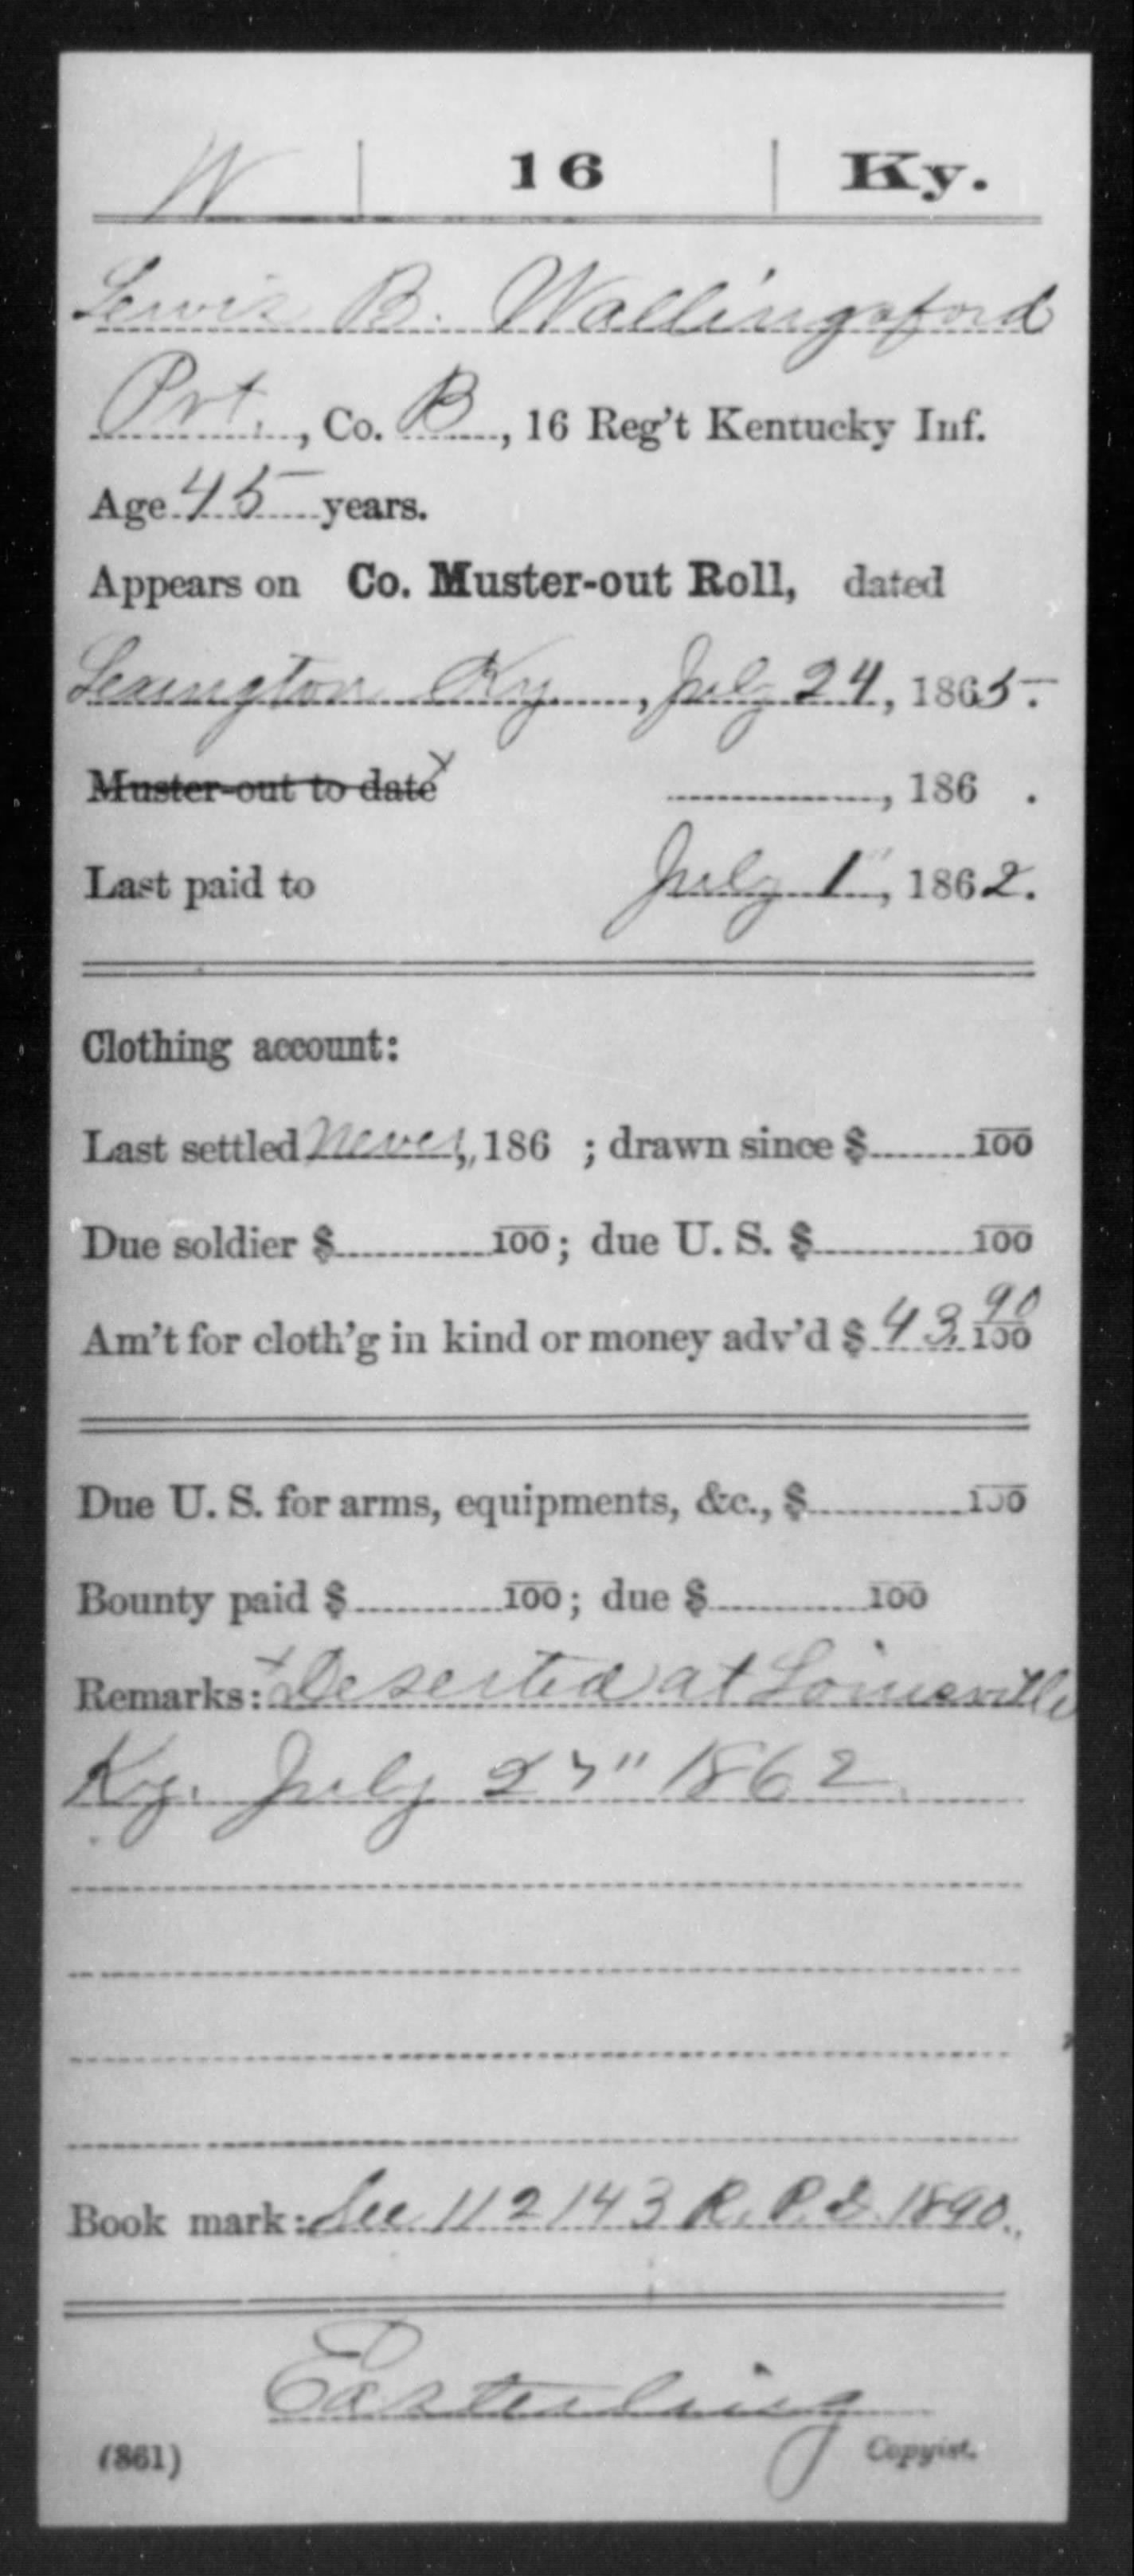 W | 16 | Ky.
Lewis B. Wallingsford
Pvt., Co. B, 16 Reg't Kentucky Inf.
Age 45 years.
Appears on Co. Muster-out Roll, dated
Lexington Ky., July 24, 1865.
Muster-out to date x , 186 .
Last paid to July 1", 1862.
Clothing account:
Last settled never, 186 ; drawn since $ 100
Due soldier $ 100; due U. S. $ 100
Am't for cloth'g in kind or money adv'd $ 43 90/100
Due U. S. for arms, equipments, &c., $ 100
Bounty paid $ 100; due $ 100
Remarks: x Deserted at Louisville
Ky. July 27" 1862
Book mark: See 112143 R. P. D. 1890.
Easterling
(861) Copyist.